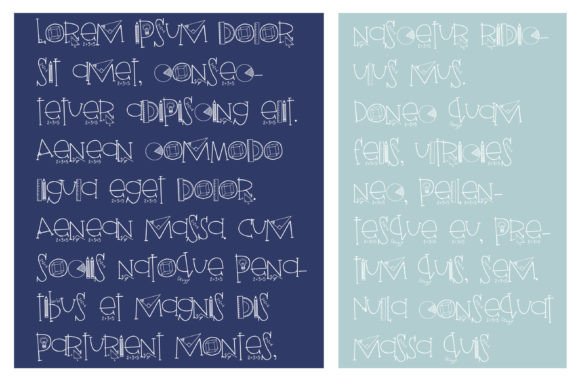 Lorem ipsum dolor
sit amet, consec-
tetuer adipiscing elit.
Aenean commodo
ligula eget dolor.
Aenean massa cum
sociis natoque pena-
tibus et magnis dis
parturient montes,
nascetur ridic-
ulus mus.
Donec quam
felis, ultricies
nec, pellen-
tesque eu, pre-
tium quis, sem.
Nulla consequat
massa quis